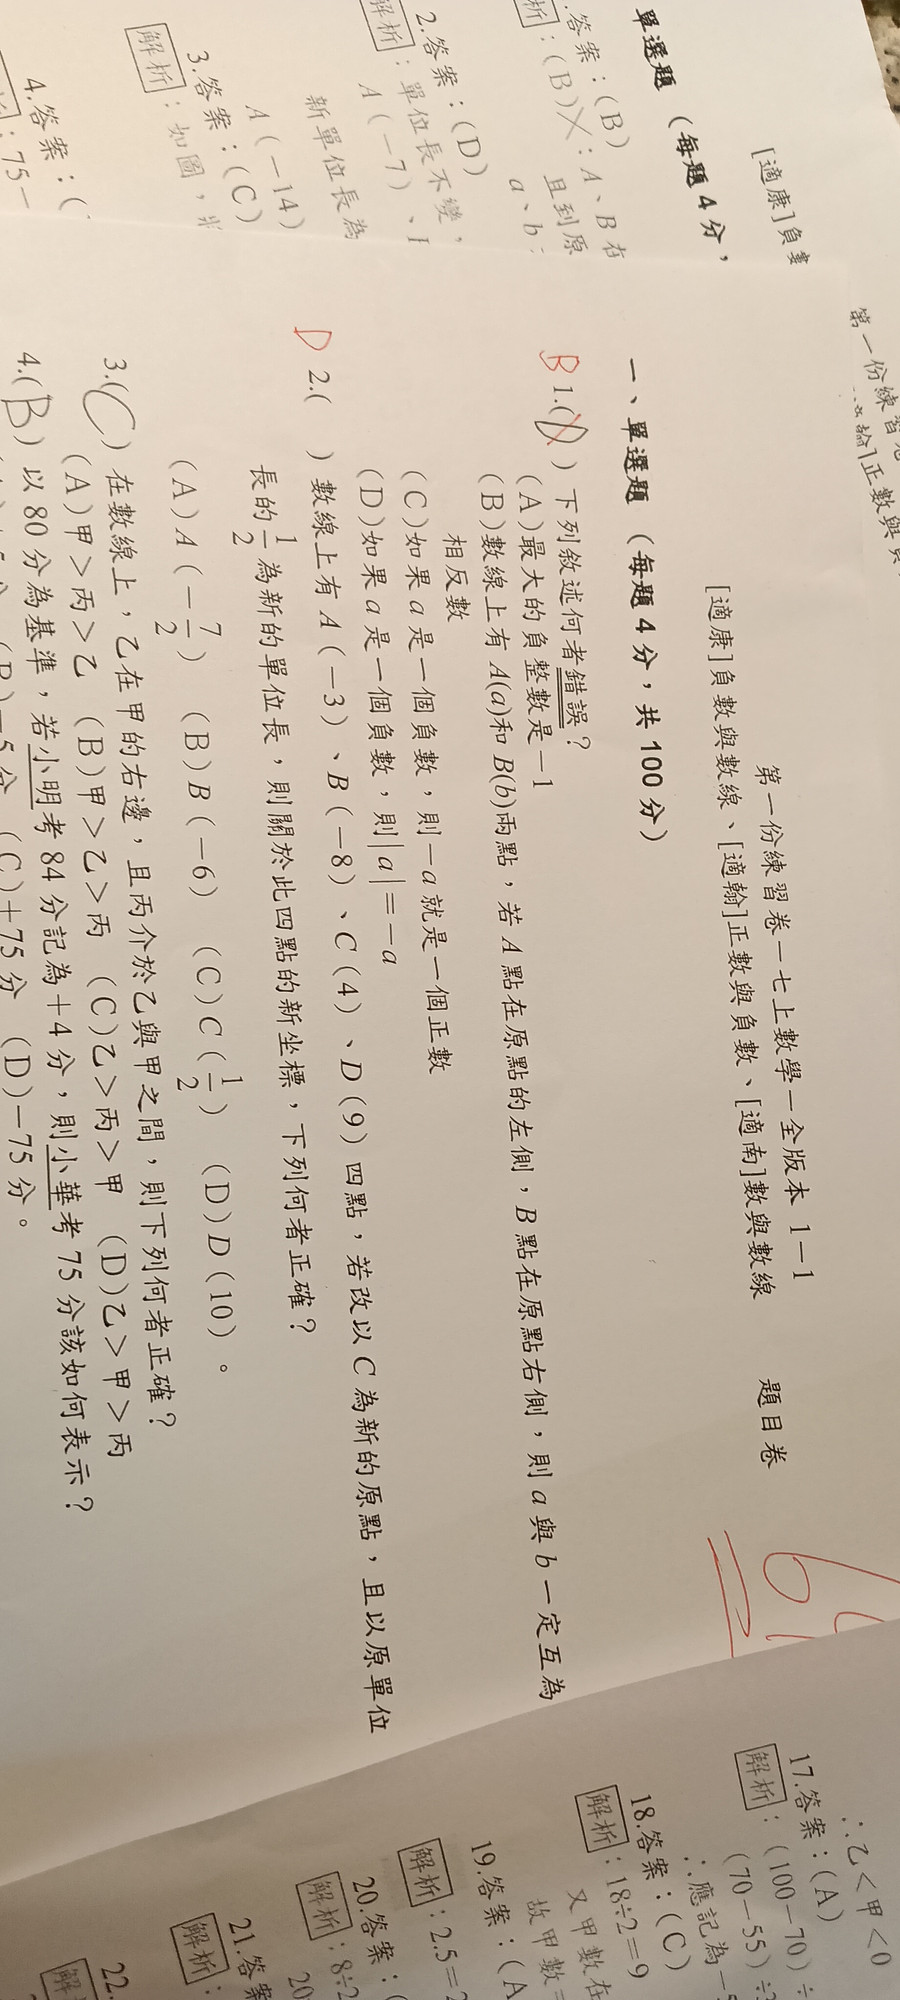 第一份練習卷－七上數學－全版本 1－1
[適康]負數與數線、[適翰]正數與負數、[適南]數與數線 題目卷
一、單選題（每題 4 分，共 100 分）
B 1.( ) 下列敘述何者錯誤？
(A)最大的負整數是－1
(B)數線上有 A(a)和 B(b)兩點，若 A 點在原點的左側，B 點在原點右側，則 a 與 b 一定互為
相反數
(C)如果 a 是一個負數，則－a 就是一個正數
(D)如果 a 是一個負數，則|a|＝－a
D 2.( ) 數線上有 A（－3）、B（－8）、C（4）、D（9）四點，若改以 C 為新的原點，且以原單位
長的 1/2 為新的單位長，則關於此四點的新坐標，下列何者正確？
(A)A（－7/2） (B)B（－6） (C)C（1/2） (D)D（10）。
3.(C) 在數線上，乙在甲的右邊，且丙介於乙與甲之間，則下列何者正確？
(A)甲＞丙＞乙 (B)甲＞乙＞丙 (C)乙＞丙＞甲 (D)乙＞甲＞丙
4.(B) 以 80 分為基準，若小明考 84 分記為＋4 分，則小華考 75 分該如何表示？
(B)－5 分 (C)＋75 分 (D)－75 分。
[適康]負
單選題（每題 4 分，
答案：(B)
：(B)╳：A、B 在
且到原
a、b：
2.答案：(D)
解析：單位長不變，
A（－7）、
新單位長為
A（－14）
3.答案：(C)
解析：如圖，
4.答案：(
：75－
第一份練習
正數與
∴乙＜甲＜0
17.答案：(A)
解析：(100－70)÷
(70－55)÷
∴應記為－
18.答案：(C)
解析：18÷2＝9
又甲數在
故甲數＝
19.答案：(A
解析：2.5＝
20.答案：(
解析：8÷2
20
21.答案
解析：
22.